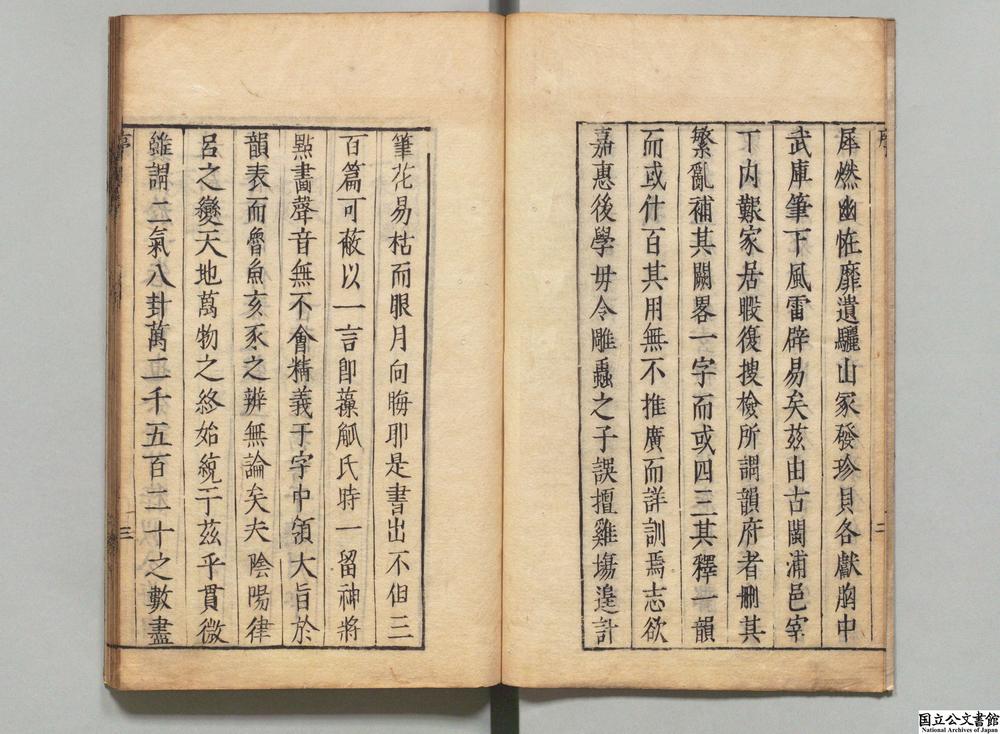 犀燃幽恠靡遺驪山冢發珍貝各獻胸中
武庫筆下風雷辟易矣茲由古閩浦邑宰
丁内艱家居暇復搜檢所謂韻府者刪其
繁亂補其闕畧一字而或四三其釋一韻
而或什百其用無不推廣而詳訓焉志欲
嘉惠後學毋令雕蟲之子誤擅雞塲遑計
筆花易枯而眼月向晦耶是書出不但三
百篇可蔽以一言即藻觚氏時一留神將
點畵聲音無不會精義于字中領大旨於
韻表而魯魚亥豕之辨無論矣夫陰陽律
呂之變天地萬物之終始統于茲乎貫微
雖謂二氣八卦萬二千五百二十之數盡
序
二
三
国立公文書館
National Archives of Japan